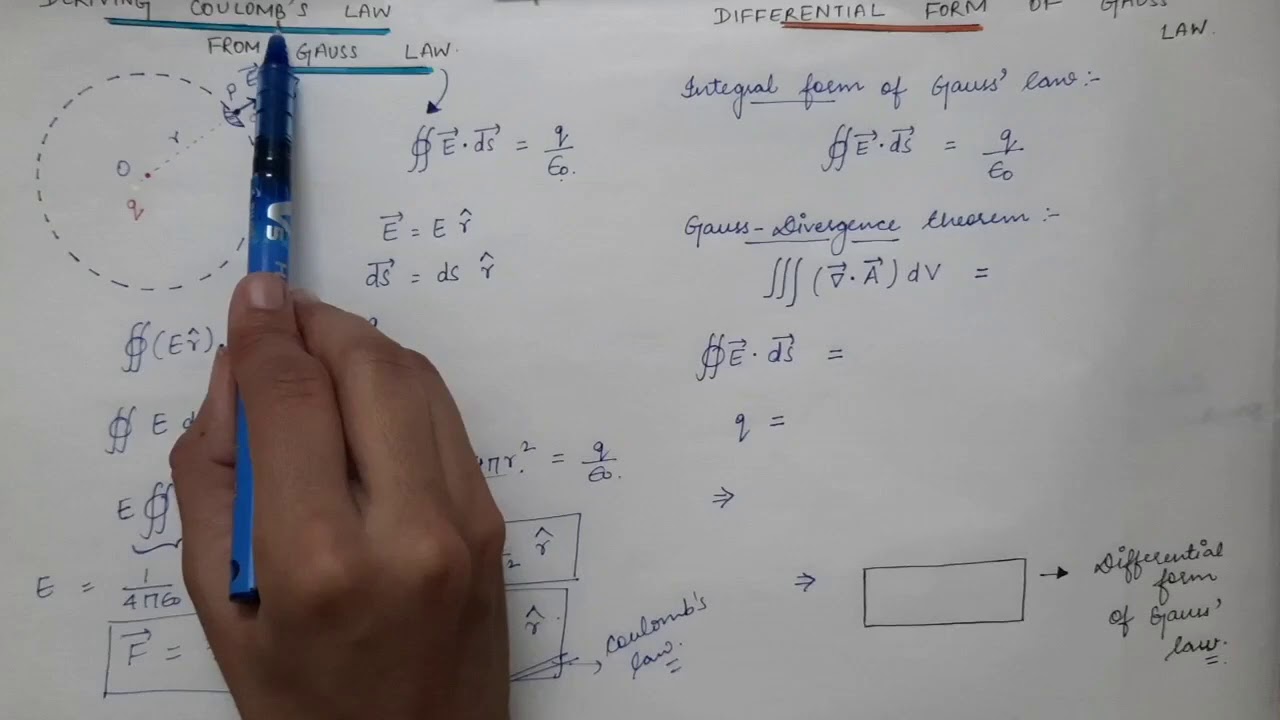 DERIVING COULOMB'S LAW
FROM GAUSS LAW.
P
r
O
q
∯ E⃗ · ds⃗ = q/ε₀.
E⃗ = E r̂
ds⃗ = ds r̂
∯ (E r̂).
∯ E
E ∯
πr.² = q/ε₀.
E = 1/4πε₀
2 r̂
F⃗ =
r̂
Coulomb's
law.
DIFFERENTIAL FORM OF GAUSS
LAW.
Integral form of Gauss' law :-
∯ E⃗ · ds⃗ = q/ε₀
Gauss-Divergence theorem :-
∭ (∇⃗ · A⃗) dV =
∯ E⃗ · ds⃗ =
q =
⇒
⇒
→ Differential
form
of Gauss'
law.